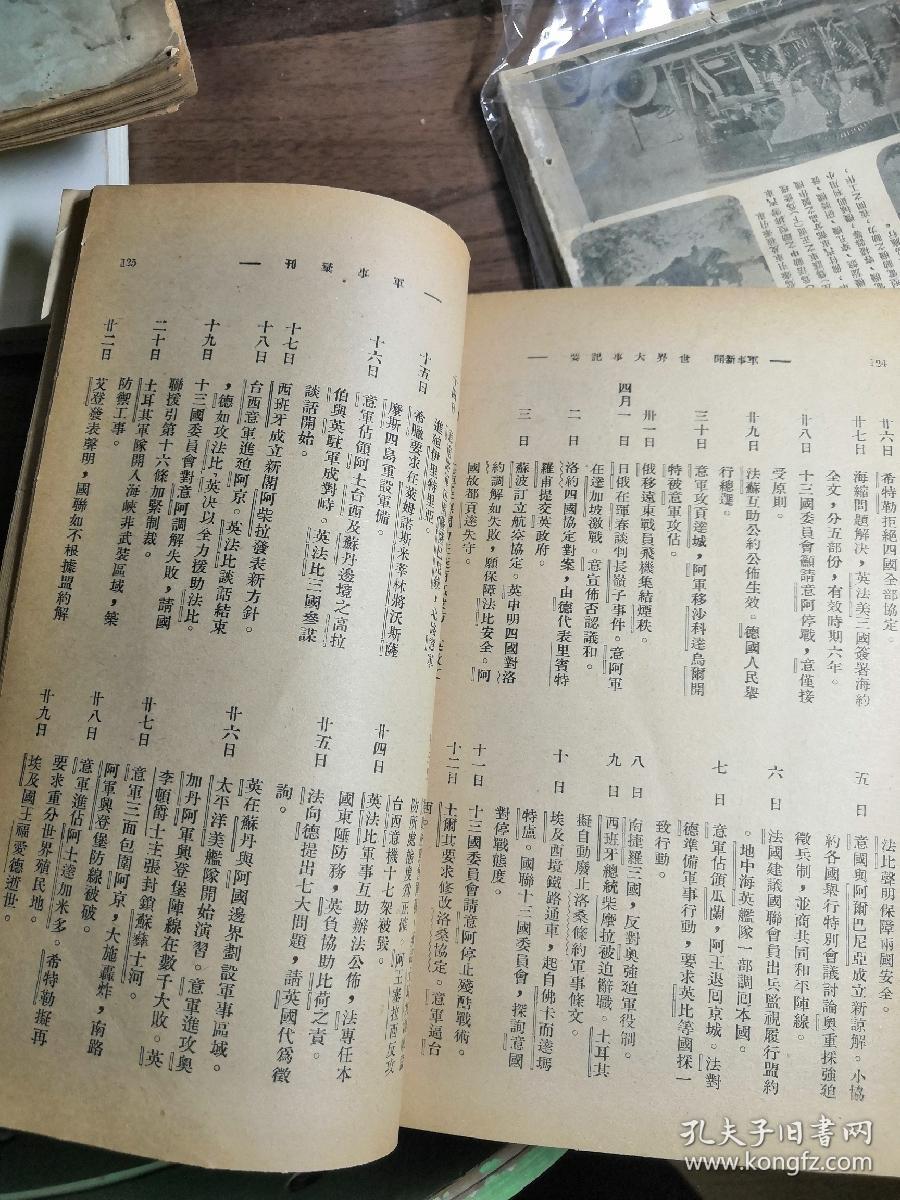 軍事新聞 世界大事記要
124
廿六日 希特勒拒絕四國全部協定。
廿七日 海縮問題解決,英法美三國簽署海約
全文,分五部份,有效時期六年。
廿八日 十三國委員會籲請意阿停戰,意僅接
受原則。
廿九日 法蘇互助公約公佈生效。德國人民舉
行總選。
三十日 意軍攻貢達城,阿軍移沙科達烏爾開
特被意軍攻佔。
卅一日 俄移遠東戰員飛機集結煙秩。
四月一日 俄在琿春談判長嶺子事件。意阿軍
在達加坡激戰。意宣佈否認議和。
二日 洛約四國協定對案,由德代表里賓特
羅甫提交英政府。
三日 蘇波訂立航空協定。英申明四國對洛
約調解如失敗,願保障法比安全。阿
國故都貢達失守。
法比聲明保障兩國安全。
五日 意國與阿爾巴尼亞成立新諒解。小協
約各國舉行特別會議討論奧重採強迫
徵兵制,並商共同和平陣線。
六日 法國建議國聯會員出兵監視履行盟約
。地中海英艦隊一部調回本國。
七日 意軍佔領瓜蘭,阿王退回京城。法對
德準備軍事行動,要求英比等國採一
致行動。
八日 南捷羅三國,反對奧強迫軍役制。
九日 西班牙總統柴摩拉被迫辭職。土耳其
擬自動廢止洛桑條約軍事條文。
十日 埃及西境鐵路通車,起自佛卡而達瑪
特盧。國聯十三國委員會,探詢意國
對停戰態度。
十一日 十三國委員會請意阿停止殘酷戰術。
十二日 土爾其要求修改洛桑協定。意軍逼台
軍事彙刊
125
進迫伊里特里亞。
十五日 希臘要求在萊姆諾斯米萃林將沃斯薩
摩斯四島重設軍備。
十六日 意軍佔領阿土台西及蘇丹邊境之高拉
伯與英駐軍成對峙。英法比三國參謀
談話開始。
十七日 西班牙成立新閣阿柴拉發表新方針。
十八日 台西意軍進迫阿京。英法比談話結束
,德如攻法比,英決以全力援助法比。
十九日 十三國委員會對意阿調解失敗,請國
聯援引第十六條加緊制裁。
二十日 土耳其軍隊開入海峽非武裝區域,築
防禦工事。
廿二日 艾登發表聲明,國聯如不根據盟約解
台西意機十七架被毀。
廿四日 英法比軍事互助辦法公佈,法專任本
國東陲防務,英負協助比荷之責。
廿五日 法向德提出七大問題,請英國代爲徵
詢。
英在蘇丹與阿國邊界劃設軍事區域。
廿六日 太平洋美艦隊開始演習。意軍進攻奧
加丹阿軍與登堡陣線在數千大敗。英
李頓爵士主張封鎖蘇彝士河。
廿七日 意軍三面包圍阿京,大施轟炸,南路
阿軍興登堡防線被破。
廿八日 意軍進佔阿土達加米多。希特勒擬再
要求重分世界殖民地。
廿九日 埃及國王福愛德逝世。
孔夫子旧书网
www.kongfz.com